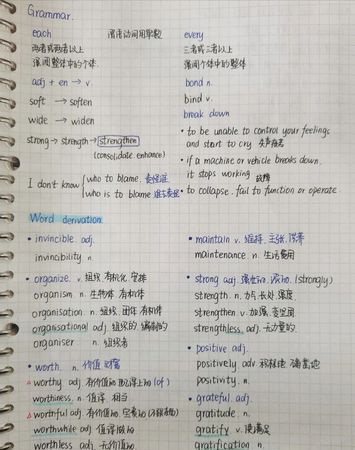 Grammar.
each 谓语动词用单数 every
两者或两者以上 三者或三者以上
强调整体中的个体. 强调个体中的整体
adj + en → v. bond n.
soft → soften bind v.
wide → widen break down
strong → strength → strengthen
(consolidate enhance)
• to be unable to control your feelings
and start to cry
• if a machine or vehicle breaks down,
it stops working 故障
• to collapse. fail to function or operate
I don't know who to blame. 责怪谁
who is to blame 谁去责怪
Word derivation.
• invincible adj.
invincibility n.
• organize. v. 组织 有机化 安排
organism n. 生物体 有机体
organisation n. 组织 团体 有机体
organisational adj. 组织的 编制的
organiser n. 组织者
• worth. n. 价值 财富
worthy adj. 有价值的 (of)
worthiness. n. 值得 相当
worthful adj. 有价值的 宝贵的
worthwhile adj 值得做的
worthless adj 无价值的
• maintain v. 维持. 主张. 保养
maintenance. n. 生活费用
• strong adj (strongly)
strength. n. 力气 长处. 强度
strengthen v. 加强. 变坚固
strengthless adj. 无力量的
• positive adj.
positively adv 积极地
positivity. n.
• grateful adj.
gratitude. n.
gratify v. 使满足
gratification n.